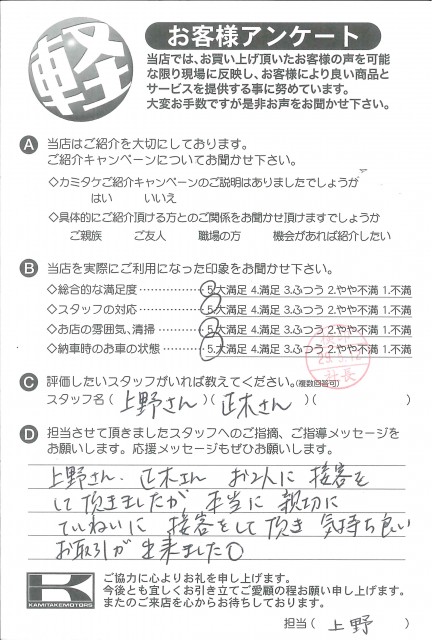 軽
お客様アンケート
当店では、お買い上げ頂いたお客様の声を可能
な限り現場に反映し、お客様により良い商品と
サービスを提供する事に努めています。
大変お手数ですが是非お声をお聞かせ下さい。
A 当店はご紹介を大切にしております。
ご紹介キャンペーンについてお聞かせ下さい。
◇カミタケご紹介キャンペーンのご説明はありましたでしょうか
はい いいえ
◇具体的にご紹介頂ける方とのご関係をお聞かせ頂けますでしょうか
ご親族 ご友人 職場の方 機会があれば紹介したい
B 当店を実際にご利用になった印象をお聞かせ下さい。
◇総合的な満足度 5.大満足 4.満足 3.ふつう 2.やや不満 1.不満
◇スタッフの対応 5.大満足 4.満足 3.ふつう 2.やや不満 1.不満
◇お店の雰囲気、清掃 5.大満足 4.満足 3.ふつう 2.やや不満 1.不満
◇納車時のお車の状態 5.大満足 4.満足 3.ふつう 2.やや不満 1.不満
社長
C 評価したいスタッフがいれば教えてください。(複数回答可)
スタッフ名(上野さん)(正木さん)( )
D 担当させて頂きましたスタッフへのご指摘、ご指導メッセージを
お願いします。応援メッセージもぜひお願いします。
上野さん、正木さん お2人に 接客を
して頂きましたが、本当に 親切に
ていねいに 接客をして頂き 気持ち良い
お取引が 出来ました。
K
KAMITAKEMOTORS
ご協力に心よりお礼を申し上げます。
今後とも宜しくお引き立てご愛顧の程お願い申し上げます。
またのご来店を心からお待ちしております。
担当(上野)